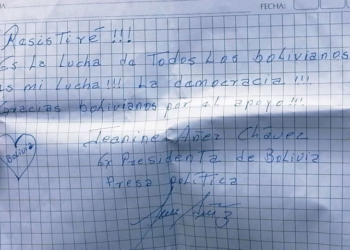 FECHA:
Resistiré !!!
Es la lucha de Todos Los bolivianos
es mi Lucha!!! La democracia !!!
Gracias bolivianos por el apoyo!!!
Jeanine Añez Chávez
Ex Presidenta de Bolivia
Presa política
Bolivia